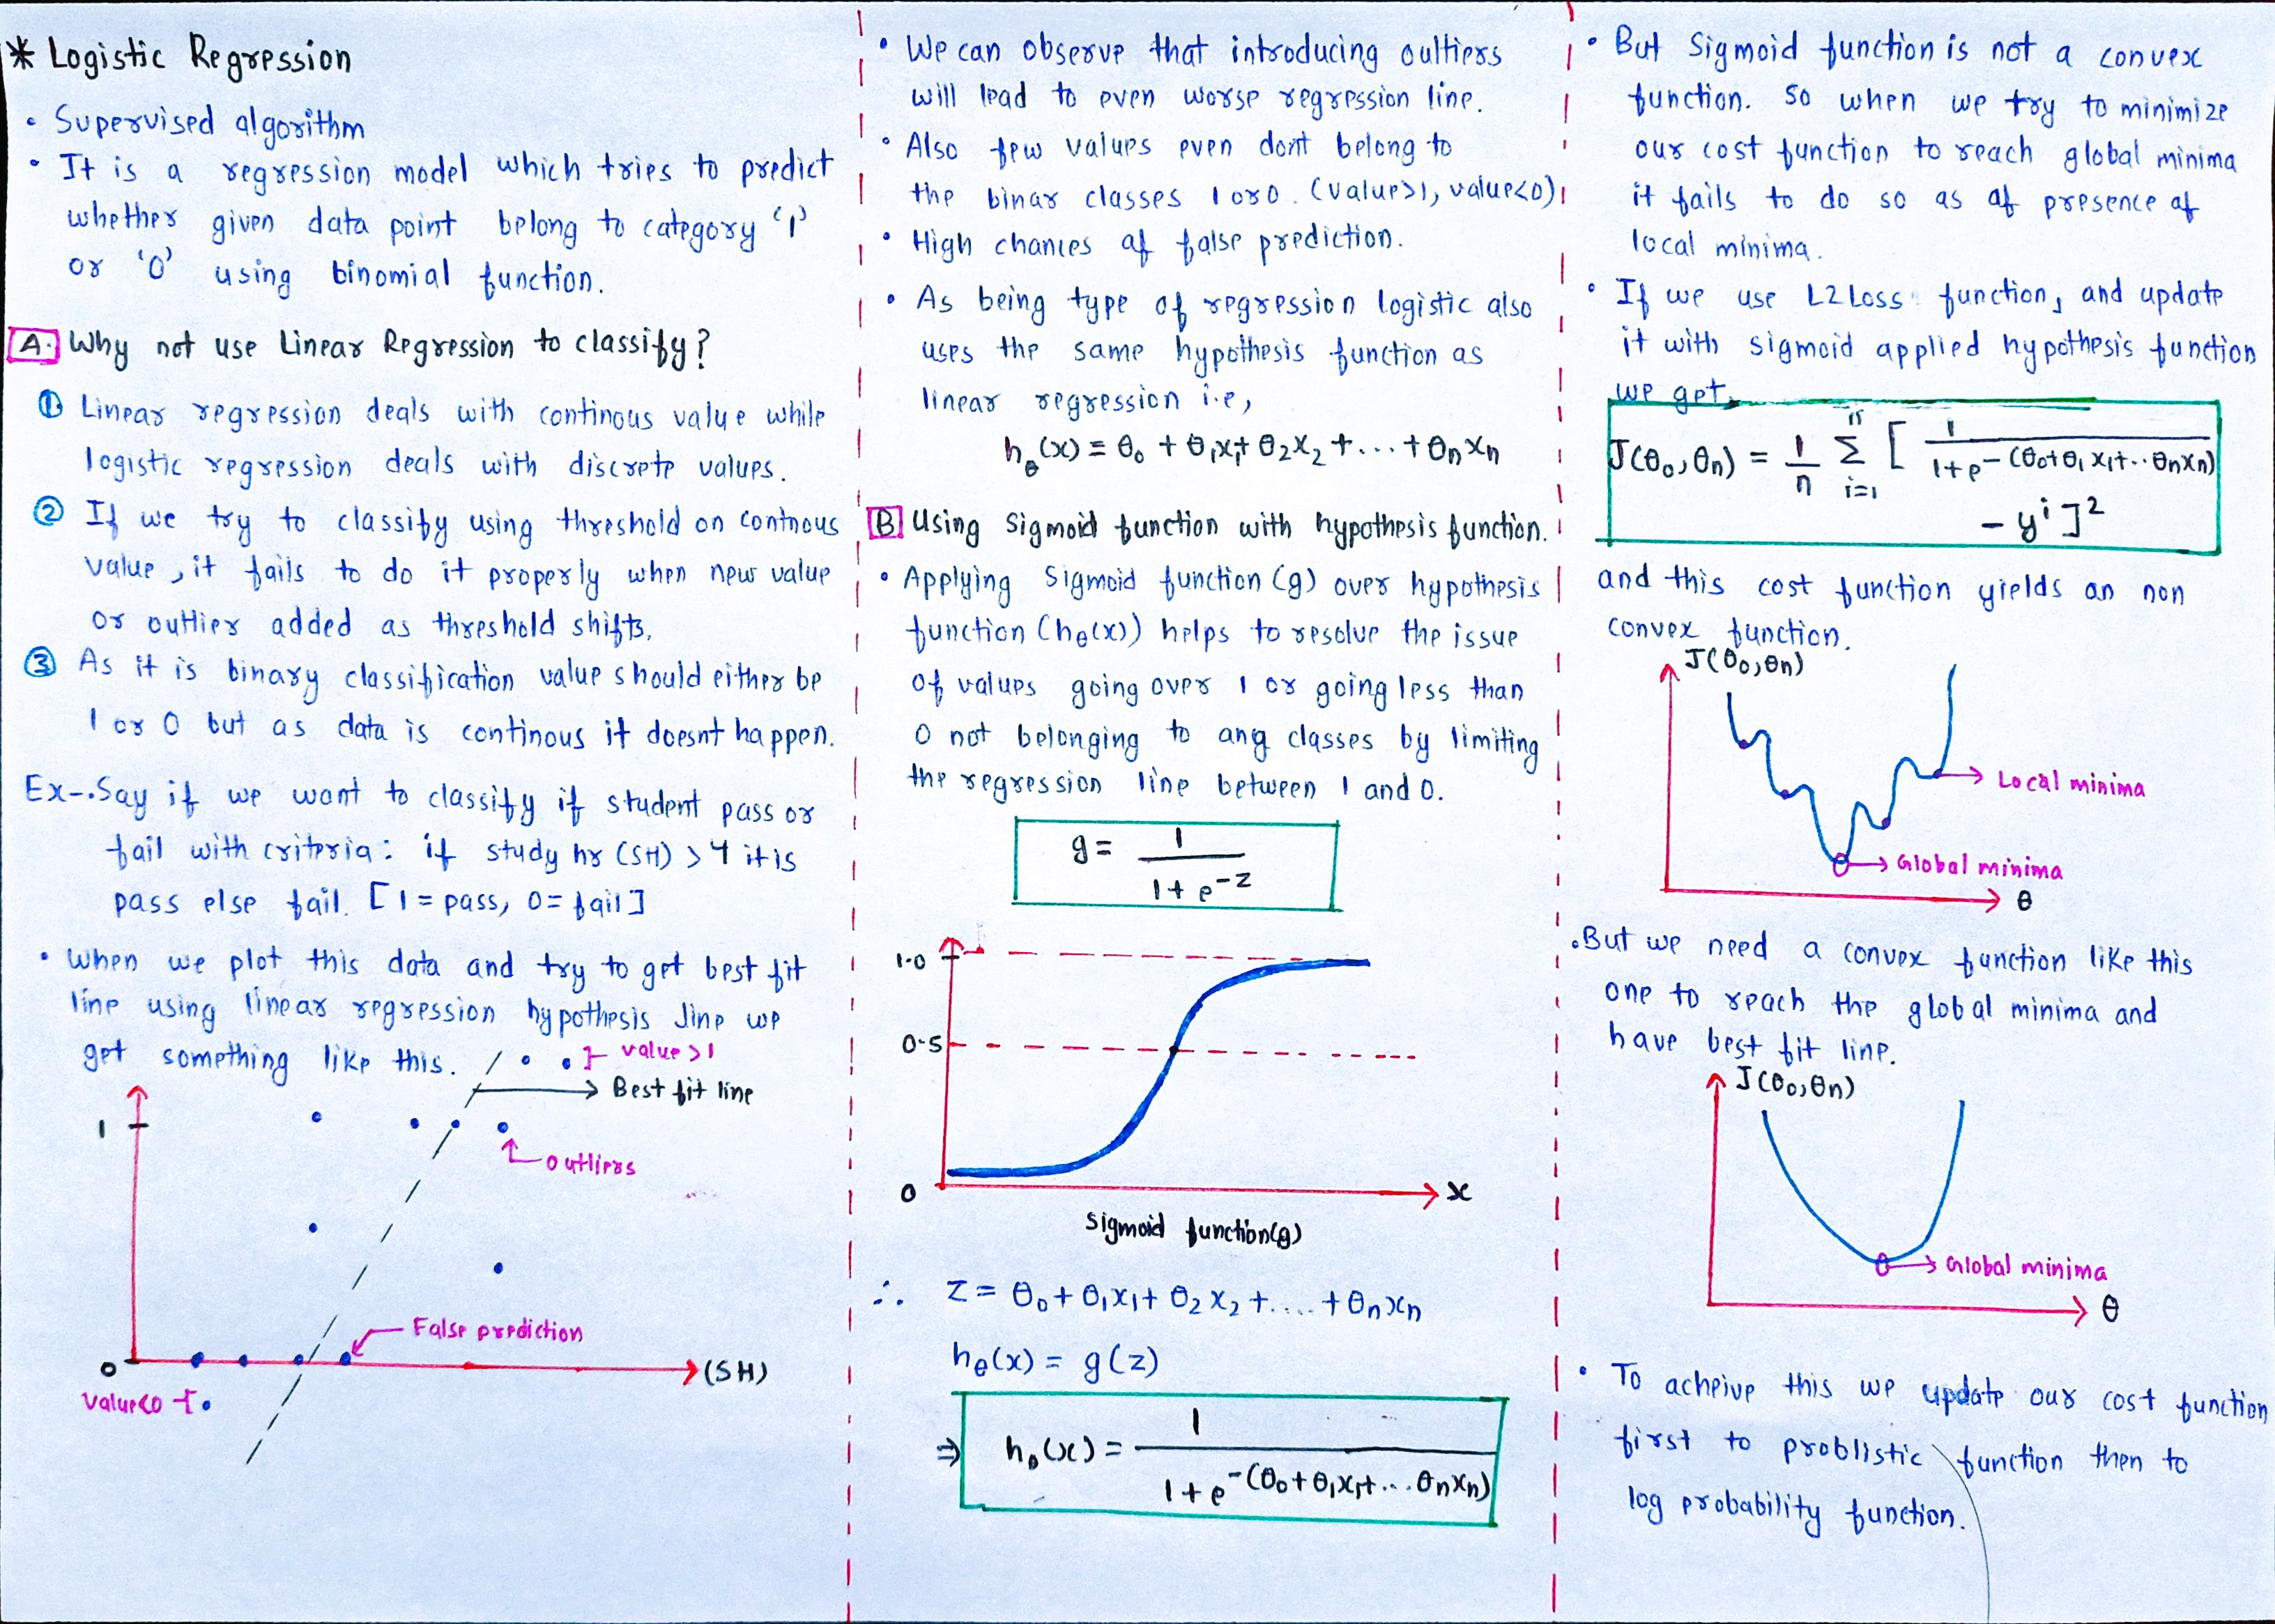 * Logistic Regression
• Supervised algorithm
• It is a regression model which tries to predict
whether given data point belong to category '1'
or '0' using binomial function.
A. Why not use Linear Regression to classify?
① Linear regression deals with continous value while
logistic regression deals with discrete values.
② If we try to classify using threshold on continous
value, it fails to do it properly when new value
or outlier added as threshold shifts.
③ As it is binary classification value should either be
1 or 0 but as data is continous it doesnt happen.
Ex-. Say if we want to classify if student pass or
fail with criteria: if study hr (SH) > 4 it is
pass else fail. [1 = pass, 0 = fail]
• When we plot this data and try to get best fit
line using linear regression hypothesis line we
get something like this.
value > 1
Best fit line
1
outliers
False prediction
0
(SH)
value<0
• We can observe that introducing oultiers
will lead to even worse regression line.
• Also few values even dont belong to
the binar classes 1 or 0. (value>1, value<0)
• High chances of false prediction.
• As being type of regression logistic also
uses the same hypothesis function as
linear regression i.e,
hθ(x) = θ0 + θ1x1 + θ2x2 + ... + θnxn
B Using Sigmoid function with hypothesis function.
• Applying Sigmoid function (g) over hypothesis
function (hθ(x)) helps to resolve the issue
of values going over 1 or going less than
0 not belonging to any classes by limiting
the regression line between 1 and 0.
g = 1 / (1 + e^-z)
1.0
0.5
0
x
Sigmoid function(g)
∴ Z = θ0 + θ1x1 + θ2x2 + .... + θnxn
hθ(x) = g(z)
⇒ hθ(x) = 1 / (1 + e^-(θ0 + θ1x1 + ... θnxn))
• But Sigmoid function is not a convex
function. So when we try to minimize
our cost function to reach global minima
it fails to do so as of presence of
local minima.
• If we use L2 Loss function, and update
it with sigmoid applied hypothesis function
we get,
J(θ0, θn) = 1/n Σ i=1 n [ 1 / (1 + e^-(θ0 + θ1x1 + .. θnxn))
- y^i ]^2
and this cost function yields an non
convex function.
J(θ0, θn)
Local minima
Global minima
θ
• But we need a convex function like this
one to reach the global minima and
have best fit line.
J(θ0, θn)
Global minima
θ
• To acheive this we update our cost function
first to problistic function then to
log probability function.